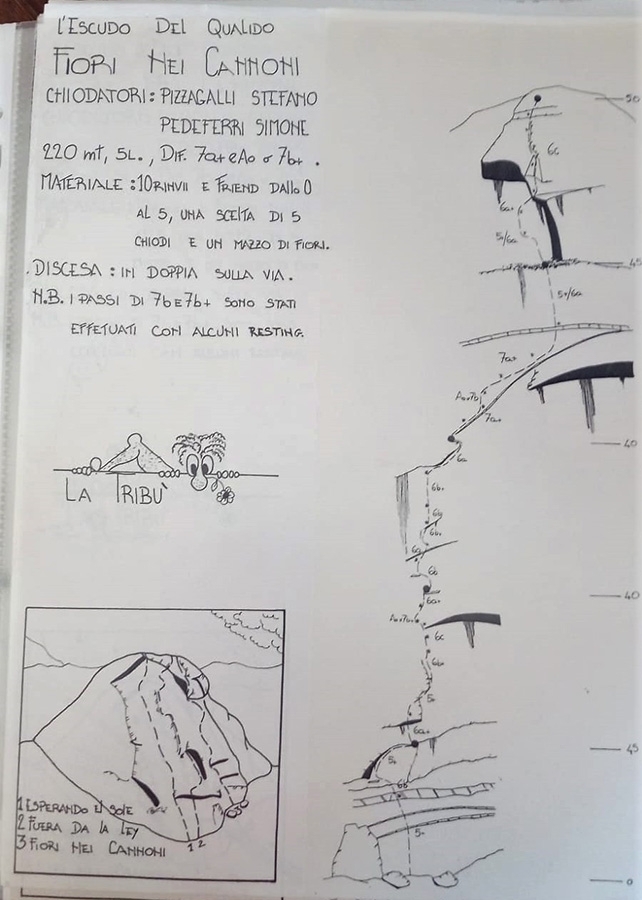 L'ESCUDO DEL QUALIDO
FIORI NEI CANNONI
CHIODATORI: PIZZAGALLI STEFANO
PEDEFERRI SIMONE
220 mt, 5L., DIF. 7a+ e A0 o 7b+.
MATERIALE: 10 RINVII E FRIEND DALLO 0
AL 5, UNA SCELTA DI 5
CHIODI E UN MAZZO DI FIORI.
DISCESA: IN DOPPIA SULLA VIA.
N.B. I PASSI DI 7b E 7b+ SONO STATI
EFFETUATI CON ALCUNI RESTING.
LA TRIBU'
1 ESPERANDO EL SOLE
2 FUERA DA LA LEY
3 FIORI NEI CANNONI
1 2
50
6c
6a+
5+/6a
45
5+/6a
7a+
A0 o 7b
7a+
40
6a
6b+
6b
6b+
6a
6b
40
6a+
A0 o 7b+
6c
6b+
6a+
45
6b
5+
0